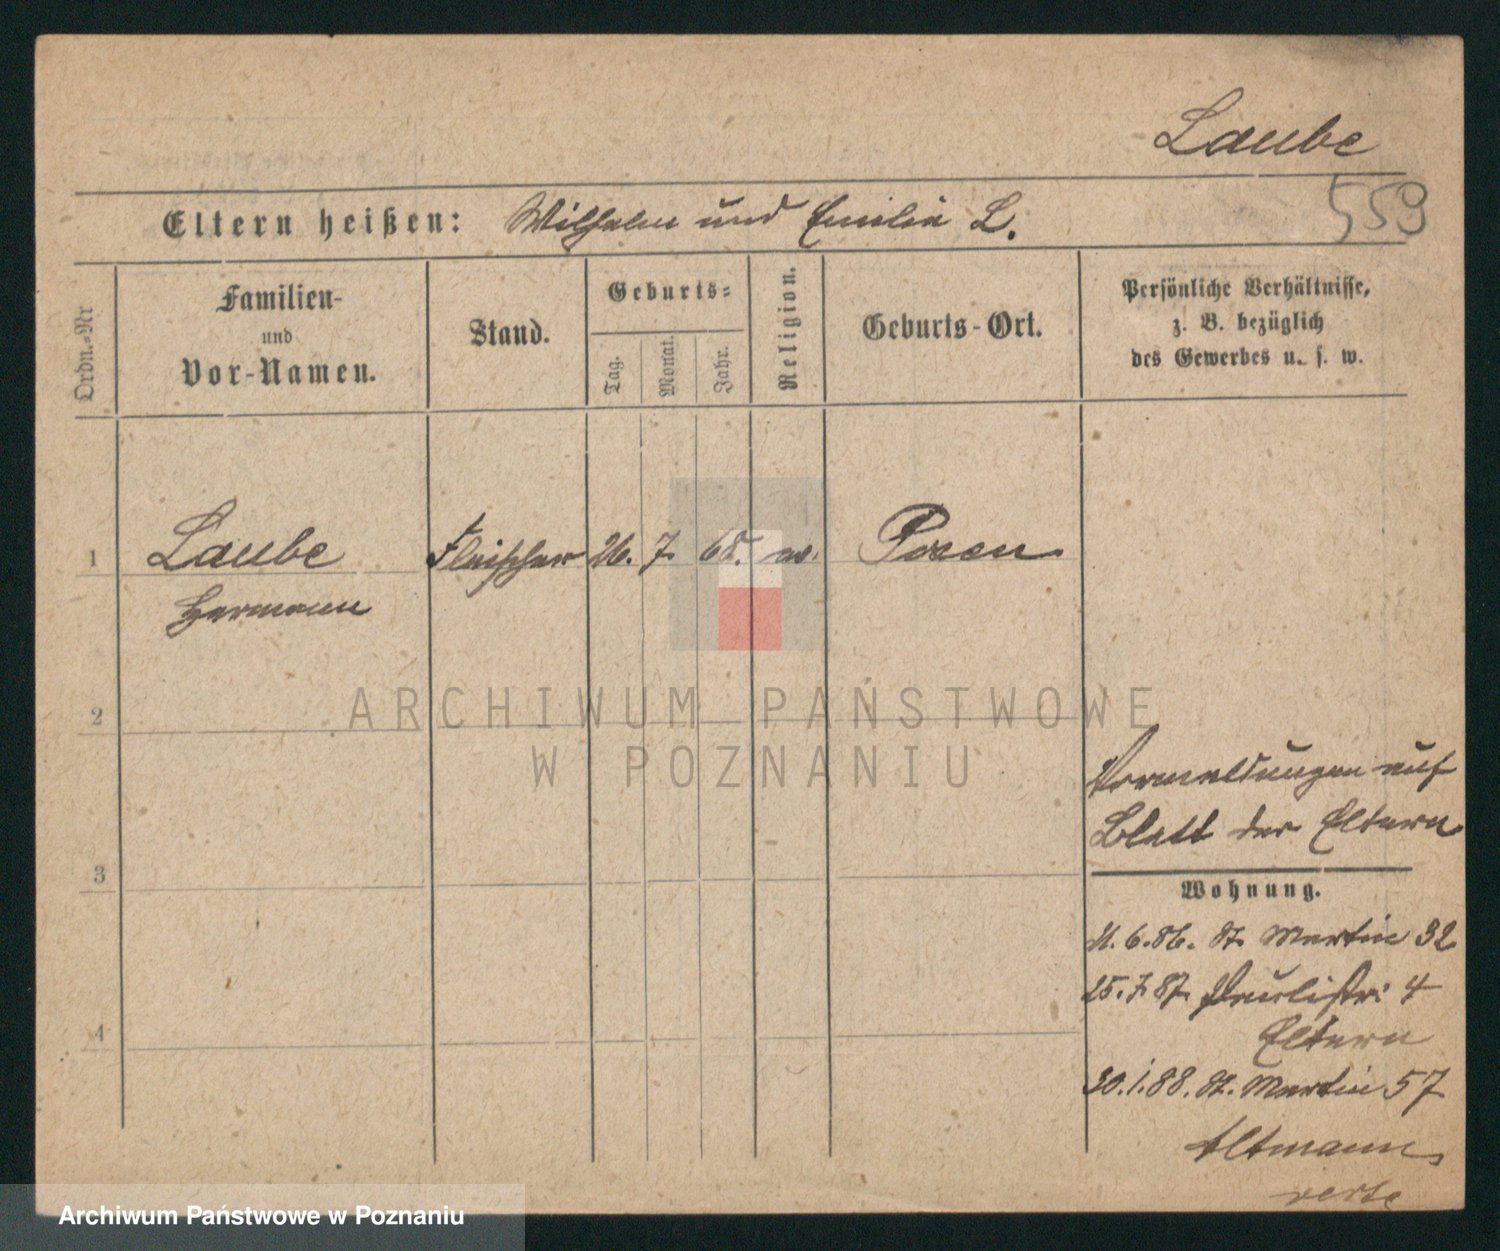 Laube
559
Eltern heißen: Wilhelm und Emilie L.
Ordn.-Nr
Familien-
und
Vor-Namen.
Stand.
Geburts-
Tag.
Monat.
Jahr.
Religion.
Geburts-Ort.
Persönliche Verhältnisse,
z. B. bezüglich
des Gewerbes u. s. w.
1 Laube Fleischer 26. 7. 68. ev. Posen
Hermann
2
ARCHIWUM PAŃSTWOWE
W POZNANIU
Vormeldungen auf
Blatt der Eltern
3
Wohnung.
11.6.86. St. Martin 32
25.7.87. Paulistr. 4
4
Eltern
30.1.88. St. Martin 57
Altmann
verte
Archiwum Państwowe w Poznaniu